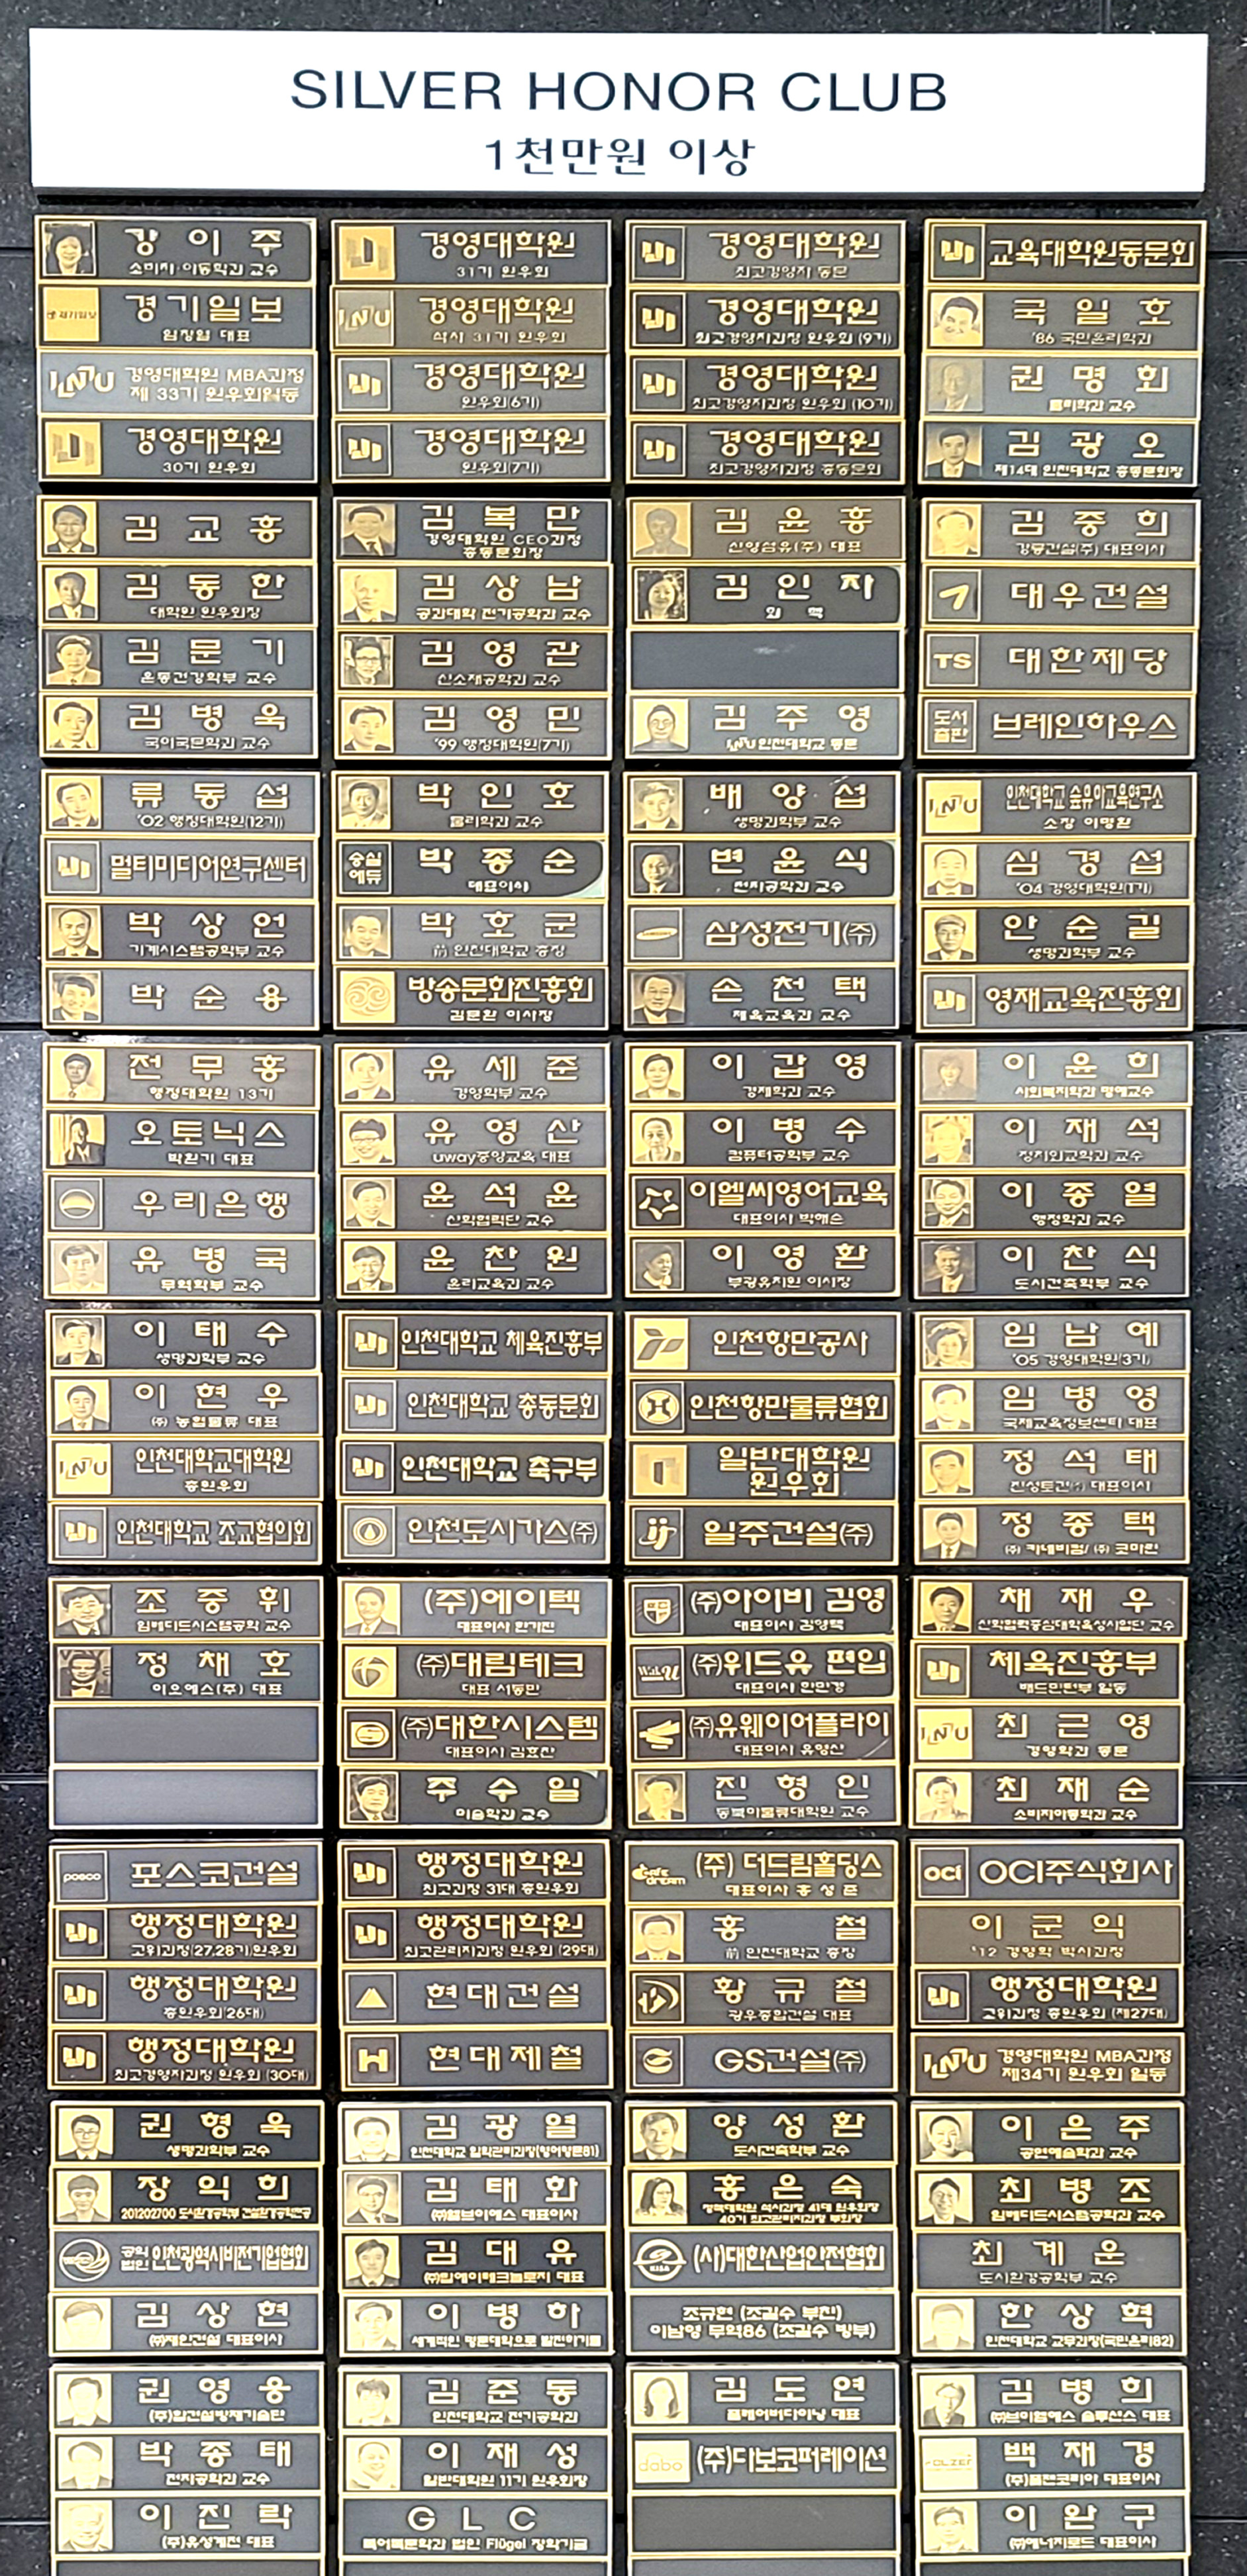 SILVER HONOR CLUB
1천만원 이상
강이주
소비자·아동학과 교수
경기일보
경기일보
임창열 대표
INU
경영대학원 MBA과정
제 33기 원우회일동
경영대학원
30기 원우회
경영대학원
31기 원우회
INU
경영대학원
석사 31기 원우회
경영대학원
원우회(6기)
경영대학원
원우회(7기)
경영대학원
최고경영자 동문
경영대학원
최고경영자과정 원우회 (9기)
경영대학원
최고경영자과정 원우회 (10기)
경영대학원
최고경영자과정 총동문회
교육대학원동문회
국일호
'86 국민윤리학과
권명회
물리학과 교수
김광오
제14대 인천대학교 총동문회장
김교흥
김동한
대학원 원우회장
김문기
운동건강학부 교수
김병욱
국어국문학과 교수
김복만
경영대학원 CEO과정
총동문회장
김상남
공과대학 전기공학과 교수
김영관
신소재공학과 교수
김영민
'99 행정대학원(7기)
김윤흥
신양섬유(주) 대표
김인자
화학
김주영
INU인천대학교 동문
김중희
강릉건설(주) 대표이사
대우건설
TS
대한제당
도서
출판
브레인하우스
류동섭
'02 행정대학원(12기)
멀티미디어연구센터
박상언
기계시스템공학부 교수
박순용
박인호
물리학과 교수
숭실
에듀
박종순
대표이사
박호군
前 인천대학교 총장
방송문화진흥회
김문환 이사장
배양섭
생명과학부 교수
변윤식
전자공학과 교수
SAMSUNG
삼성전기(주)
손천택
체육교육과 교수
INU
인천대학교 숲유아교육연구소
소장 이명환
심경섭
'04 경영대학원(1기)
안순길
생명과학부 교수
영재교육진흥회
전무홍
행정대학원 13기
오토닉스
박환기 대표
우리은행
유병국
무역학부 교수
유세준
경영학부 교수
유영산
uway중앙교육 대표
윤석윤
산학협력단 교수
윤찬원
윤리교육과 교수
이갑영
경제학과 교수
이병수
컴퓨터공학부 교수
이엘씨영어교육
대표이사 박해순
이영환
부광유치원 이사장
이윤희
사회복지학과 명예교수
이재석
정치외교학과 교수
이종열
행정학과 교수
이찬식
도시건축학부 교수
이태수
생명과학부 교수
이현우
(주) 농협물류 대표
INU
인천대학교대학원
총원우회
인천대학교 조교협의회
인천대학교 체육진흥부
인천대학교 총동문회
인천대학교 축구부
인천도시가스(주)
인천항만공사
인천항만물류협회
일반대학원
원우회
일주건설(주)
임남예
'05 경영대학원(3기)
임병영
국제교육정보센터 대표
정석태
진성토건(주) 대표이사
정종택
(주) 키네비컴/ (주) 코마린
조중휘
임베디드시스템공학 교수
정채호
이오에스(주) 대표
(주)에이텍
대표이사 한가진
(주)대림테크
대표 서동만
(주)대한시스템
대표이사 김효진
주수일
미술학과 교수
(주)아이비 김영
대표이사 김영택
WithU
(주)위드유 편입
대표이사 한만경
(주)유웨이어플라이
대표이사 유영산
진형인
동북아물류대학원 교수
채재우
산학협력중심대학육성사업단 교수
체육진흥부
배드민턴부 일동
INU
최근영
경영학과 동문
최재순
소비자아동학과 교수
posco
포스코건설
행정대학원
고위과정(27,28기)원우회
행정대학원
총원우회(26대)
행정대학원
최고경영자과정 원우회 (30대)
행정대학원
최고과정 31대 총원우회
행정대학원
최고관리자과정 원우회 (29대)
현대건설
현대제철
DREAM
(주) 더드림홀딩스
대표이사 홍성준
홍철
前 인천대학교 총장
황규철
광우종합건설 대표
GS건설(주)
OCI
OCI주식회사
이군익
'12 경영학 박사과정
행정대학원
고위과정 총원우회 (제27대)
INU
경영대학원 MBA과정
제34기 원우회 일동
권형욱
생명과학부 교수
장익희
201202700 도시환경공학부 건설환경공학전공
공익
법인
인천광역시비전기업협회
김상현
(주)재인건설 대표이사
김광열
인천대학교 입학관리과장(영어영문81)
김태화
(주)헬브이에스 대표이사
김대유
(주)립에이테크놀로지 대표
이병하
세계적인 명문대학으로 발전하기를
양성환
도시건축학부 교수
홍은숙
정책대학원 석사과정 41대 원우회장
40기 최고관리자과정 부회장
KISA
(사)대한산업안전협회
조규현 (조길수 부친)
이남영 무역86 (조길수 방부)
이은주
공연예술학과 교수
최병조
임베디드시스템공학과 교수
최계운
도시환경공학부 교수
한상혁
인천대학교 교무과장(국민윤리82)
권영웅
(주)합건설방재기술단
박종태
전자공학과 교수
이진락
(주)유성계전 대표
김준동
인천대학교 전기공학과
이재성
일반대학원 11기 원우회장
GLC
독어독문학과 법인 Flügel 장학기금
김도연
플레이버다이닝 대표
dabo
(주)다보코퍼레이션
김병희
(주)브이엠에스 솔루션스 대표
백재경
(주)폴젠코리아 대표이사
이완구
(주)에너지로드 대표이사